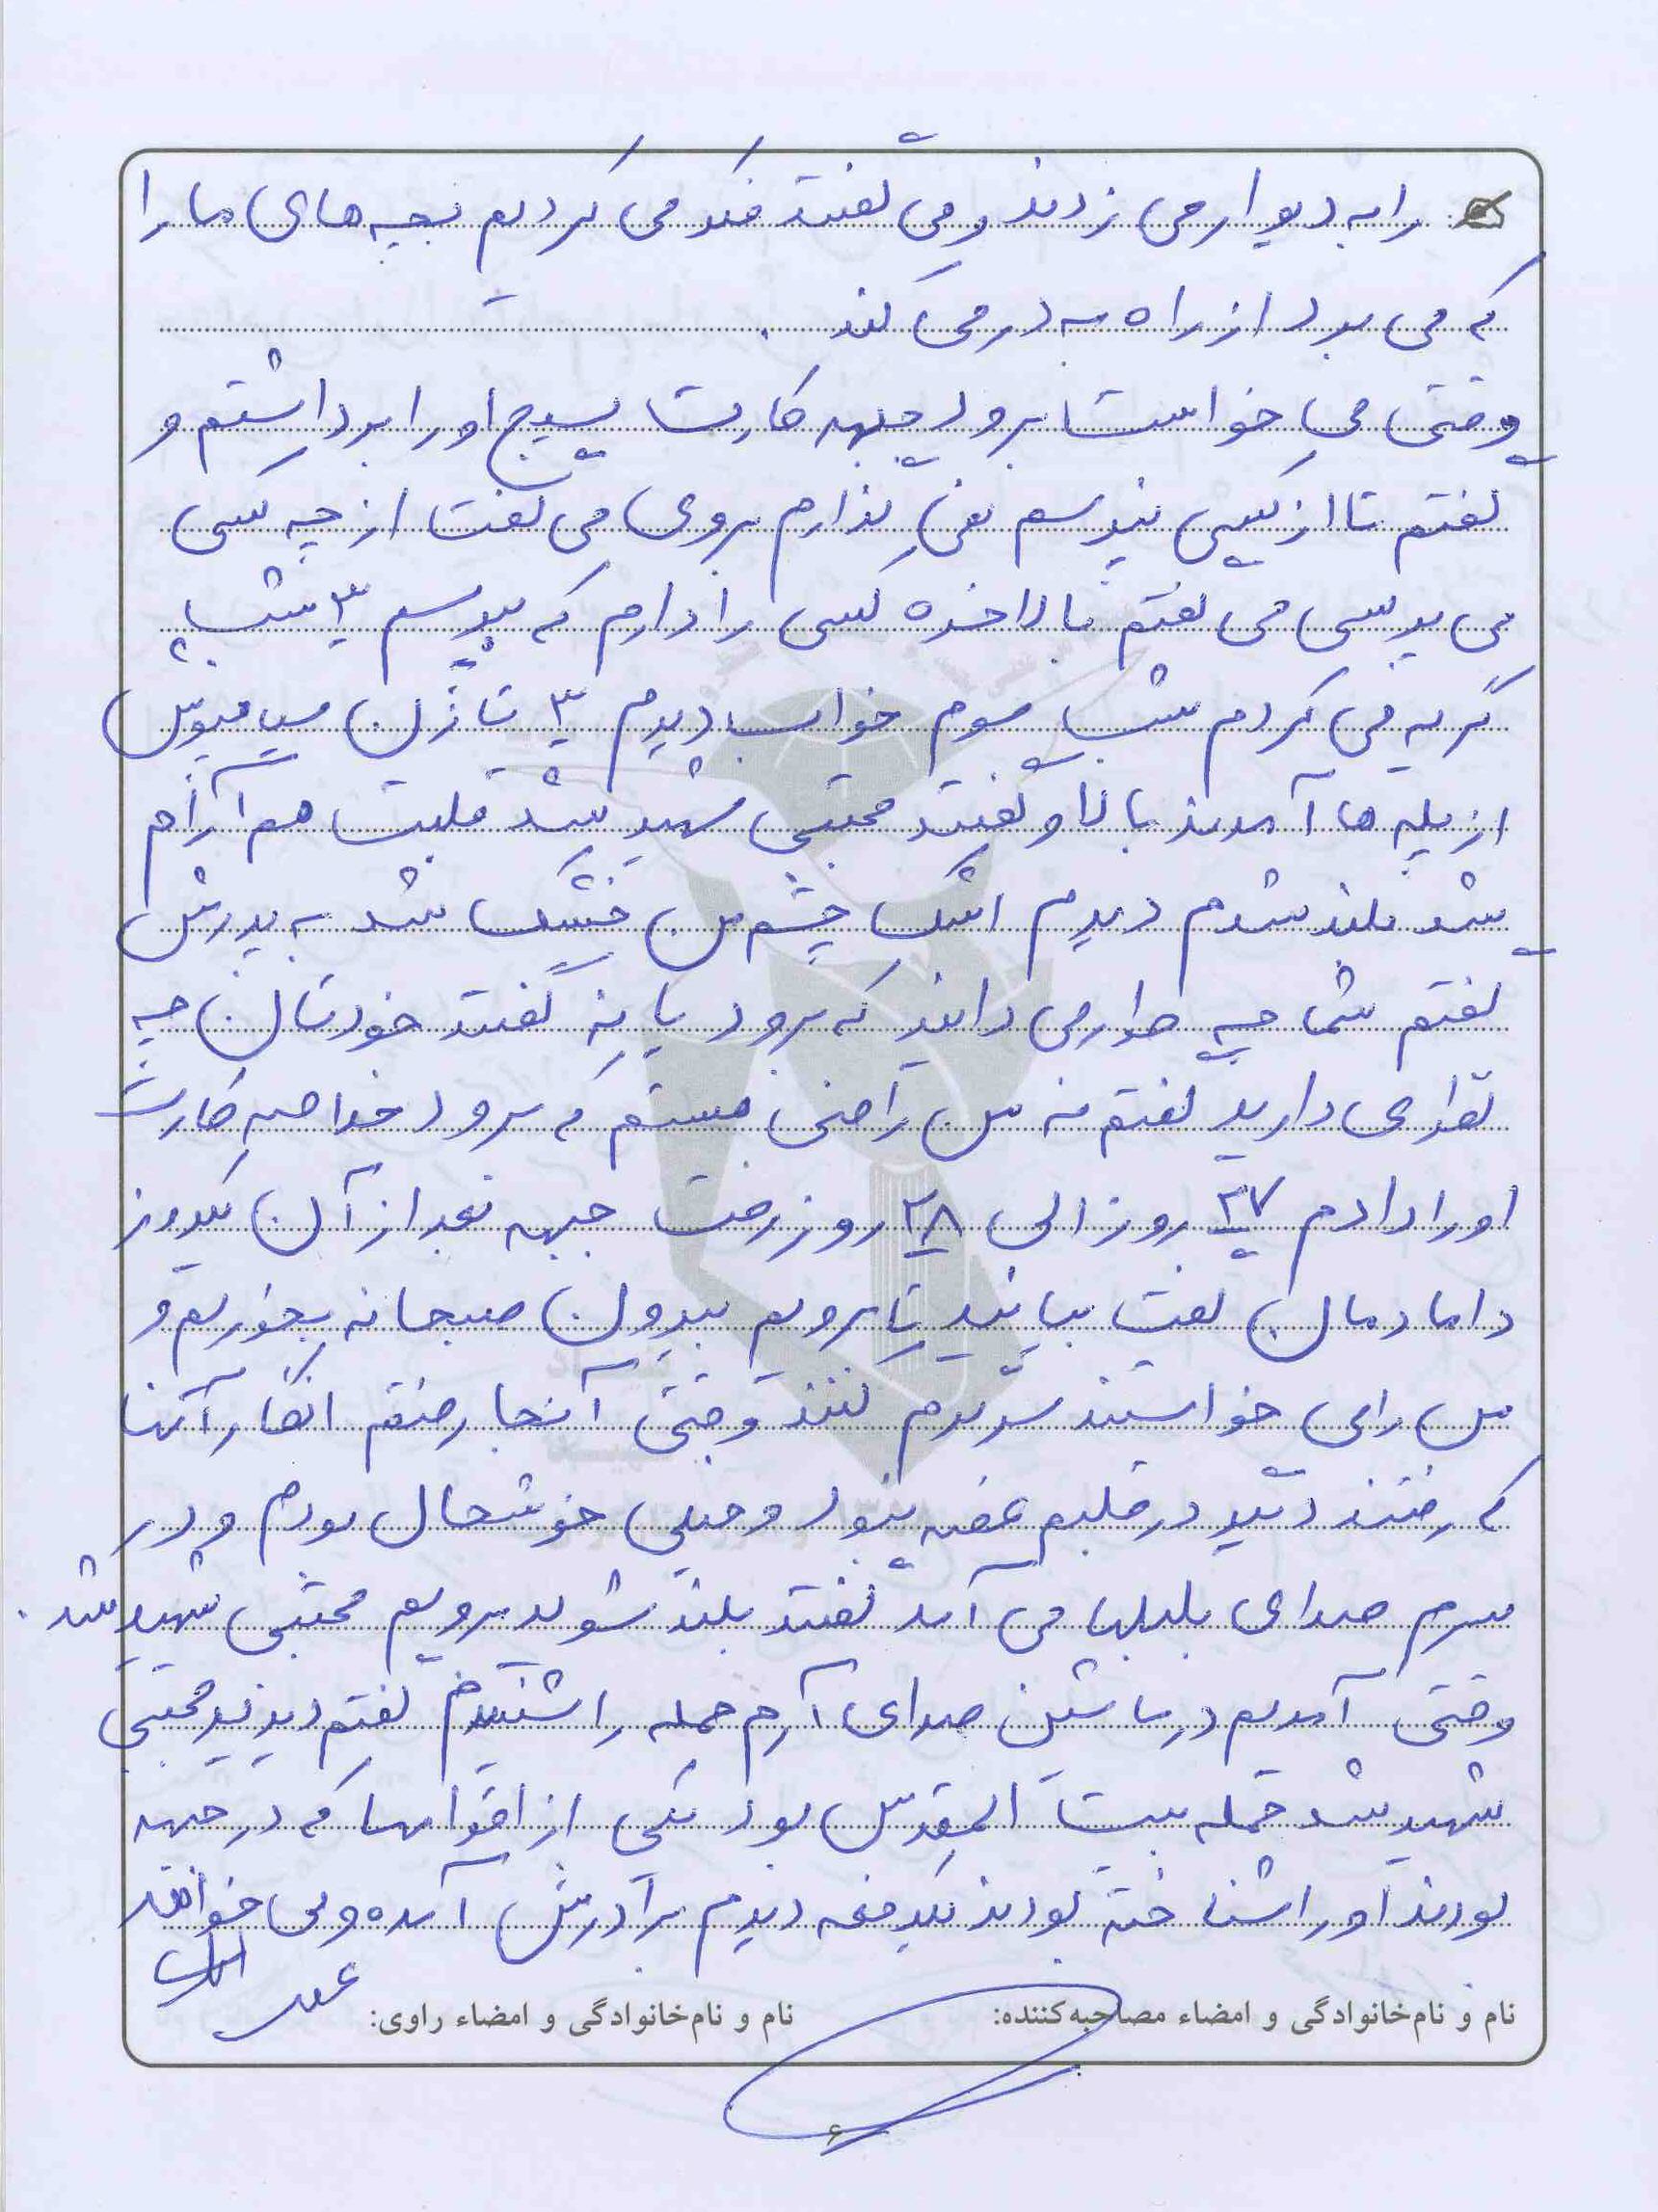 را به دیوار می زدند و می گفتند فکر می کردیم بچه های ما را
که می برد از راه به در می کند .
وقتی می خواست برود جبهه کارت بسیج او را برداشتم و
گفتم تا از کسی نپرسم نمی گذارم بروی می گفت از چه کسی
می پرسی می گفتم بالاخره کسی را دارم که بپرسم ۳ شب
گریه می کردم شب سوم خواب دیدم ۳ تا زن سیاهپوش
از پله ها آمدند بالا و گفتند مجتبی شهید شد قلبت هم آرام
شد بلند شدم دیدم اشک چشم من خشک شد به پدرش
گفتم شما چه طوار می دانید که برود یا نه گفتند خودتان چه
نظری دارید گفتم نه من راضی هستم که برود خلاصه کارت
او را دادم ۲۷ روز الی ۲۸ روز رفت جبهه بعد از آن یکروز
دامادمان گفت بیائید تا برویم بیرون صبحانه بخوریم و
من را می خواستند سرگرم کنند وقتی آنجا رفتم انگار آنها
که رفتند دیگر در قلبم غصه نبود و خیلی خوشحال بودم و در
سرم صدای بلبلها می آمد گفتند بلند شوید برویم مجتبی شهید شد .
وقتی آمدیم در ماشین صدای آرم حمله را شنیدم گفتم دیدید مجتبی
شهید شد حمله بیت المقدس بود یکی از اقوامها که در جبهه
بودند او را شناخته بودند یکدفعه دیدم برادرش آمده و می خواهند
نام و نام‌خانوادگی و امضاء مصاحبه‌کننده:
نام و نام‌خانوادگی و امضاء راوی:
۶